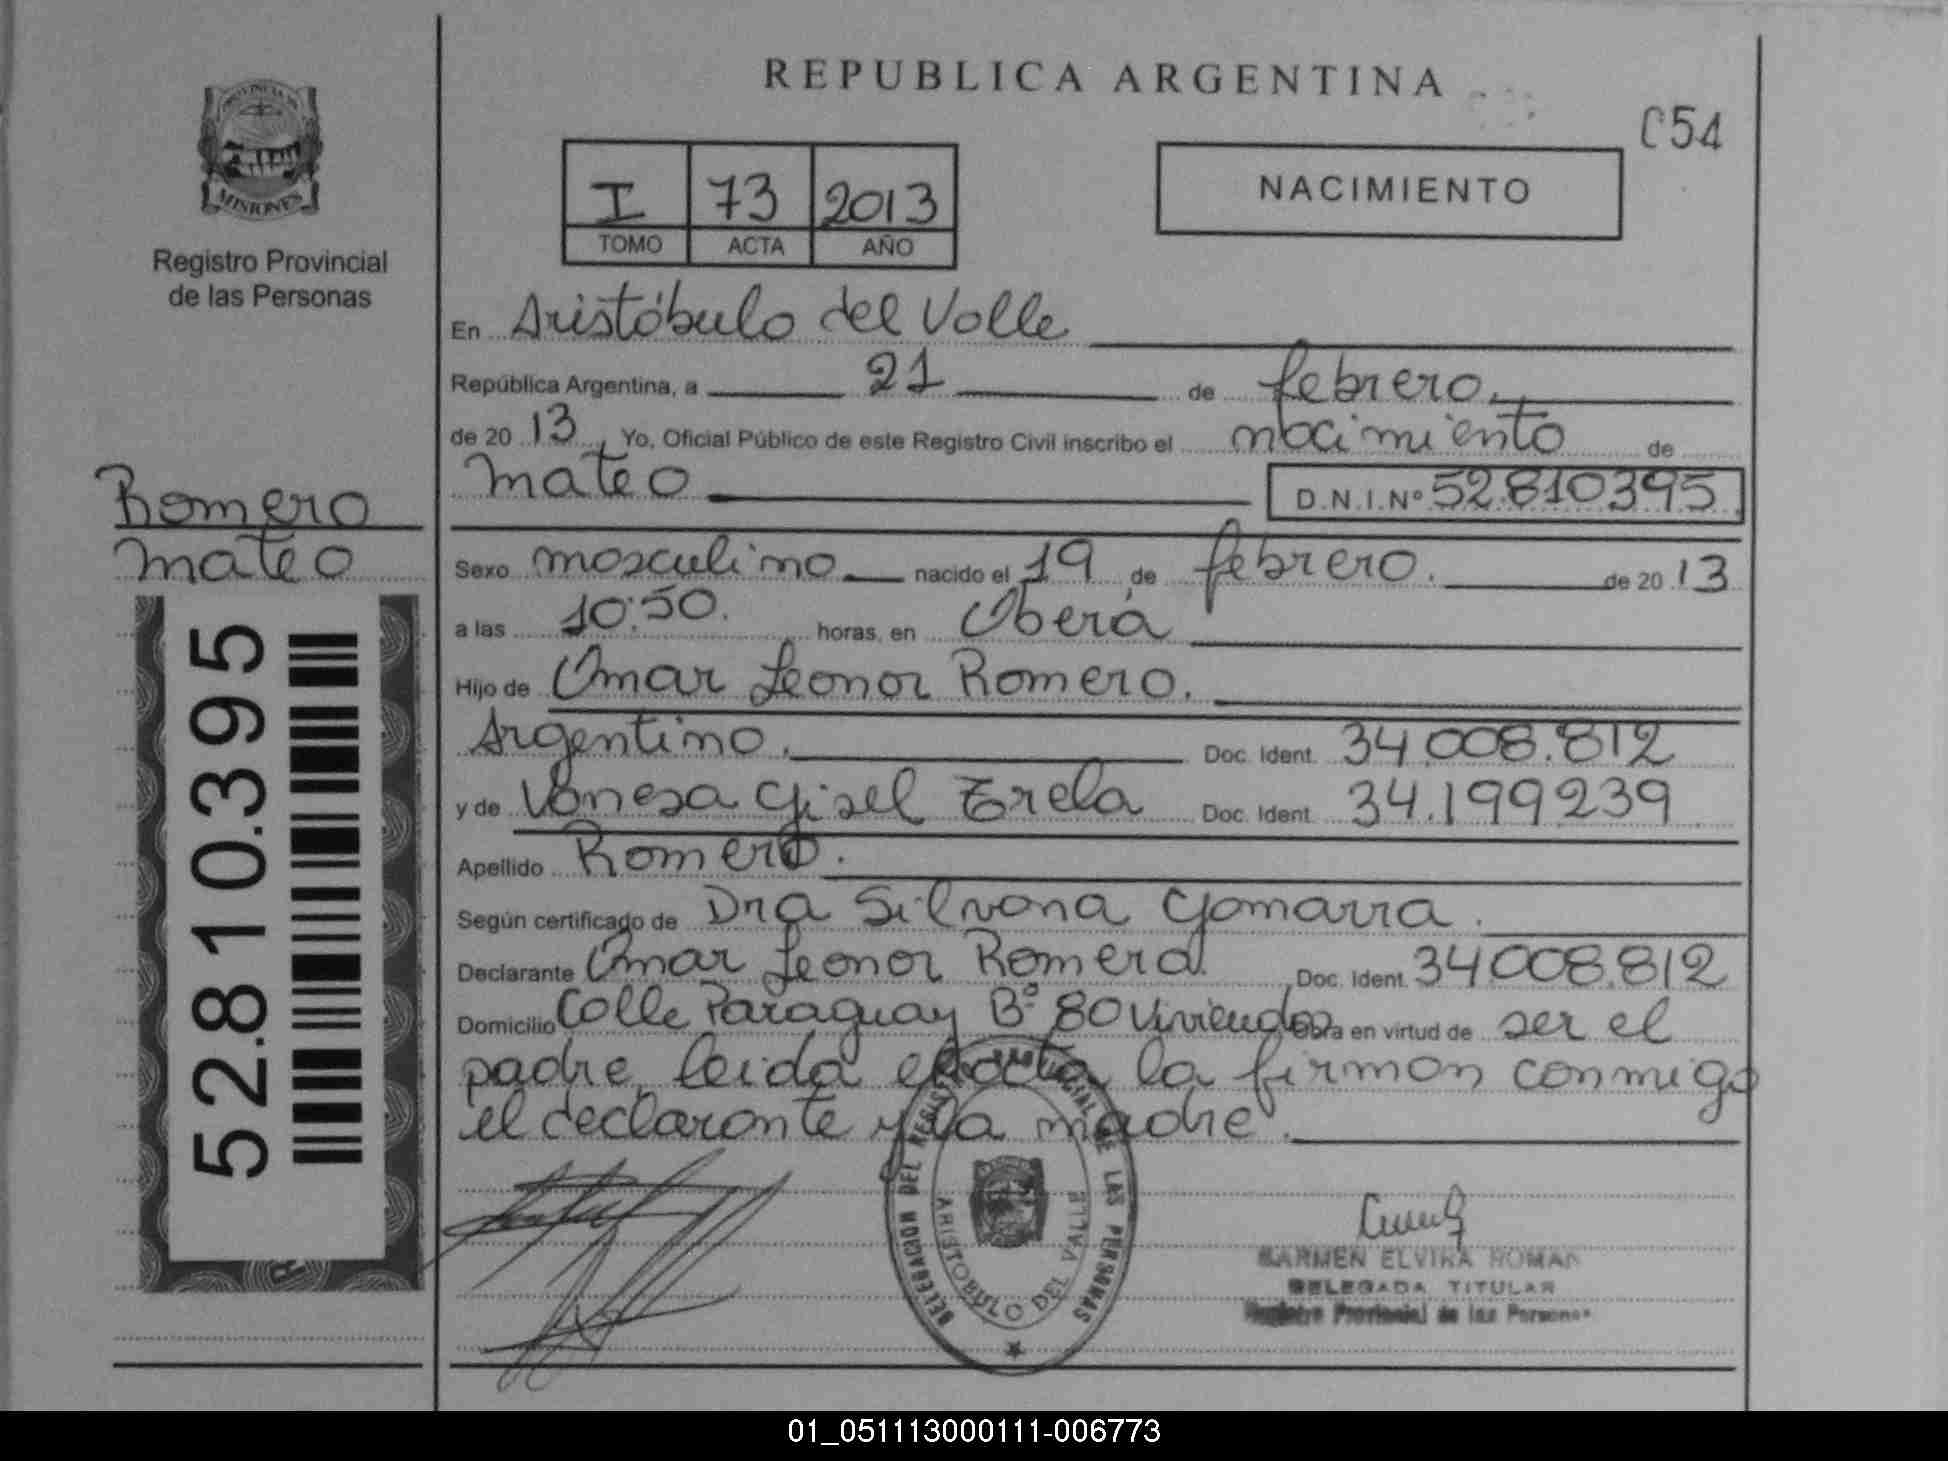 REPUBLICA ARGENTINA
C54
PROVINCIA DE
MISIONES
Registro Provincial
de las Personas
I 73 2013
TOMO ACTA AÑO
NACIMIENTO
En Aristóbulo del Valle
República Argentina, a 21 de febrero.
de 20 13, Yo, Oficial Público de este Registro Civil inscribo el nacimiento de
Mateo D.N.I.Nº 52.810395
Romero
Mateo
52.810.395
Sexo masculino nacido el 19 de febrero. de 20 13
a las 10:50. horas, en Oberá
Hijo de Omar Leonor Romero.
Argentino. Doc. Ident. 34.008.812
y de Vanesa Gisel Doc. Ident. 34.199239
Apellido Romero.
Según certificado de Dra Silvana Gomarra.
Declarante Omar Leonor Romero. Doc. Ident. 34.008.812
Domicilio Calle Paraguay Bº 80 Viviendas Obra en virtud de ser el
padre, leida el acta la firman conmigo
el declarante y la madre.
DELEGACION DEL REGISTRO PROVINCIAL DE LAS PERSONAS
ARISTOBULO DEL VALLE
CARMEN ELVIRA ROMAN
DELEGADA TITULAR
Registro Provincial de las Personas
01_051113000111-006773